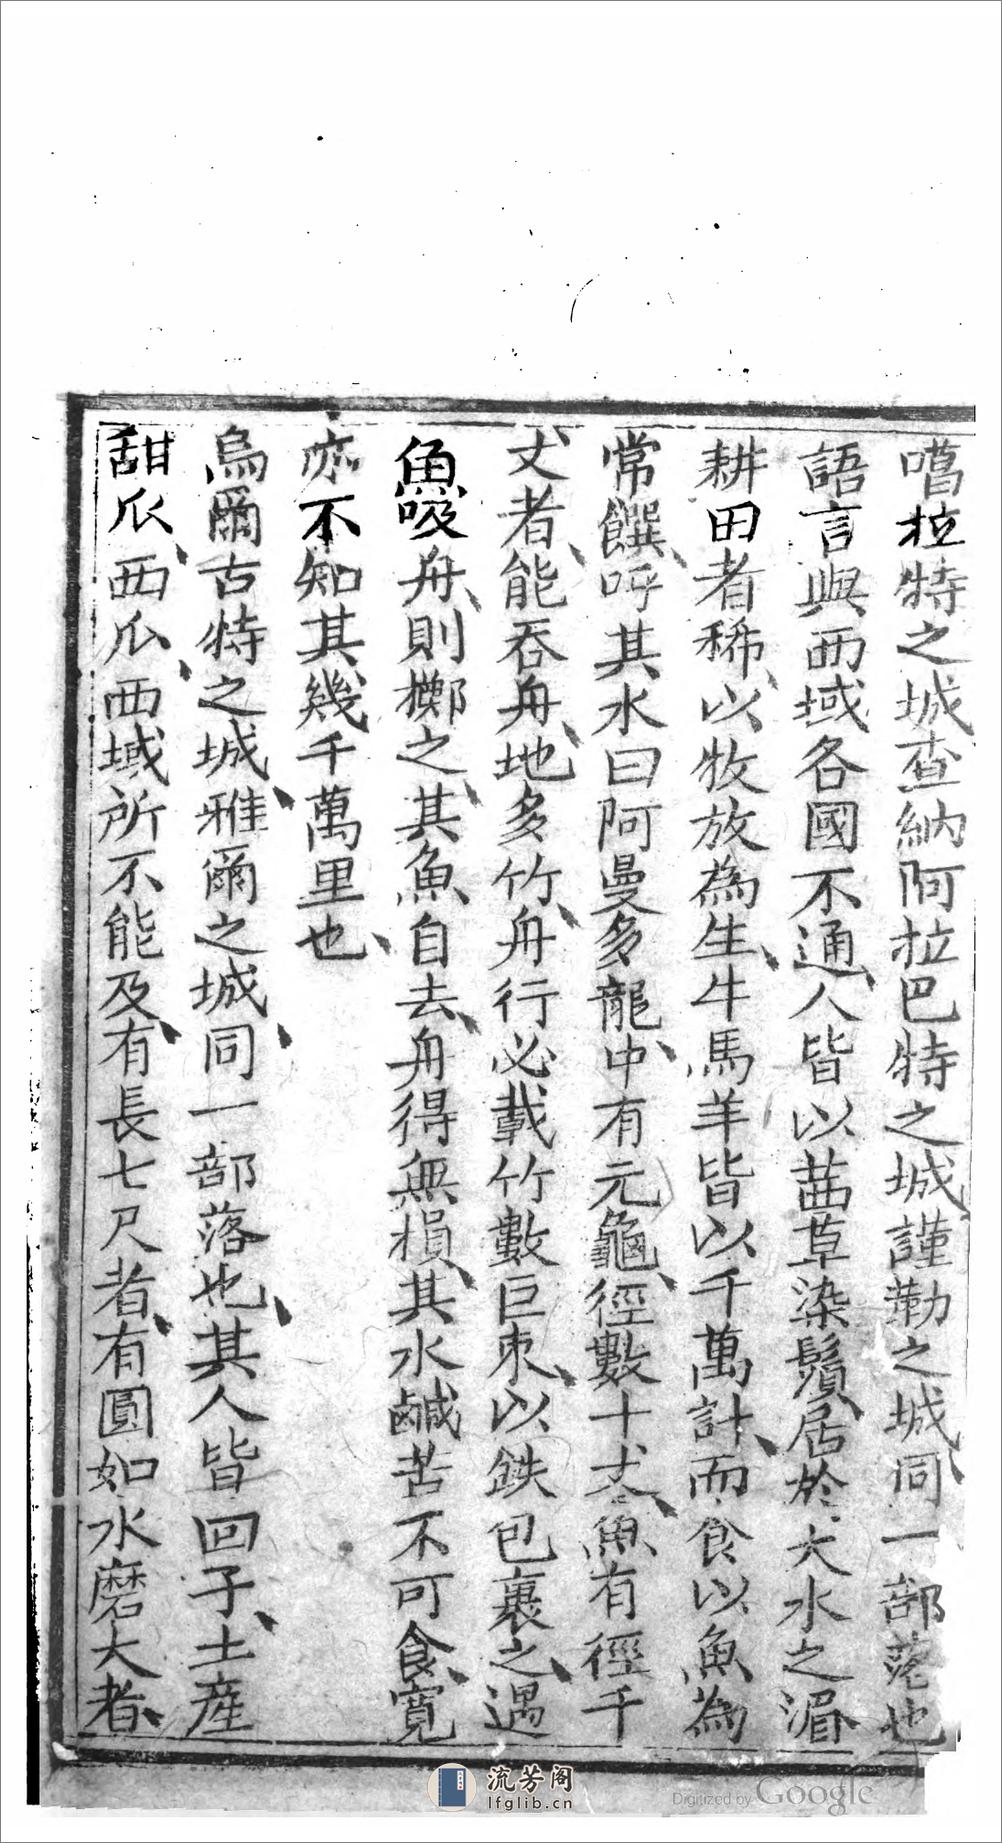 嚪拉特之城查納阿拉巴特之城謹勒之城同一部落也
語言與西域各國不通人皆以茜草染鬚居於大水之湄
耕田者稀以牧放為生牛馬羊皆以千萬計而食以魚為
常饌呼其水曰阿曼多龍中有元龜徑數十丈魚有徑千
丈者能吞舟地多竹舟行必載竹數巨束以鉄包裹之遇
魚吸舟則擲之其魚自去舟得無損其水鹹苦不可食寬
亦不知其幾千萬里也
烏爾古特之城雅爾之城同一部落也其人皆回子土產
甜瓜西瓜西域所不能及有長七尺者有圓如水磨大者
流芳阁
lfglib.cn
Digitized by Google